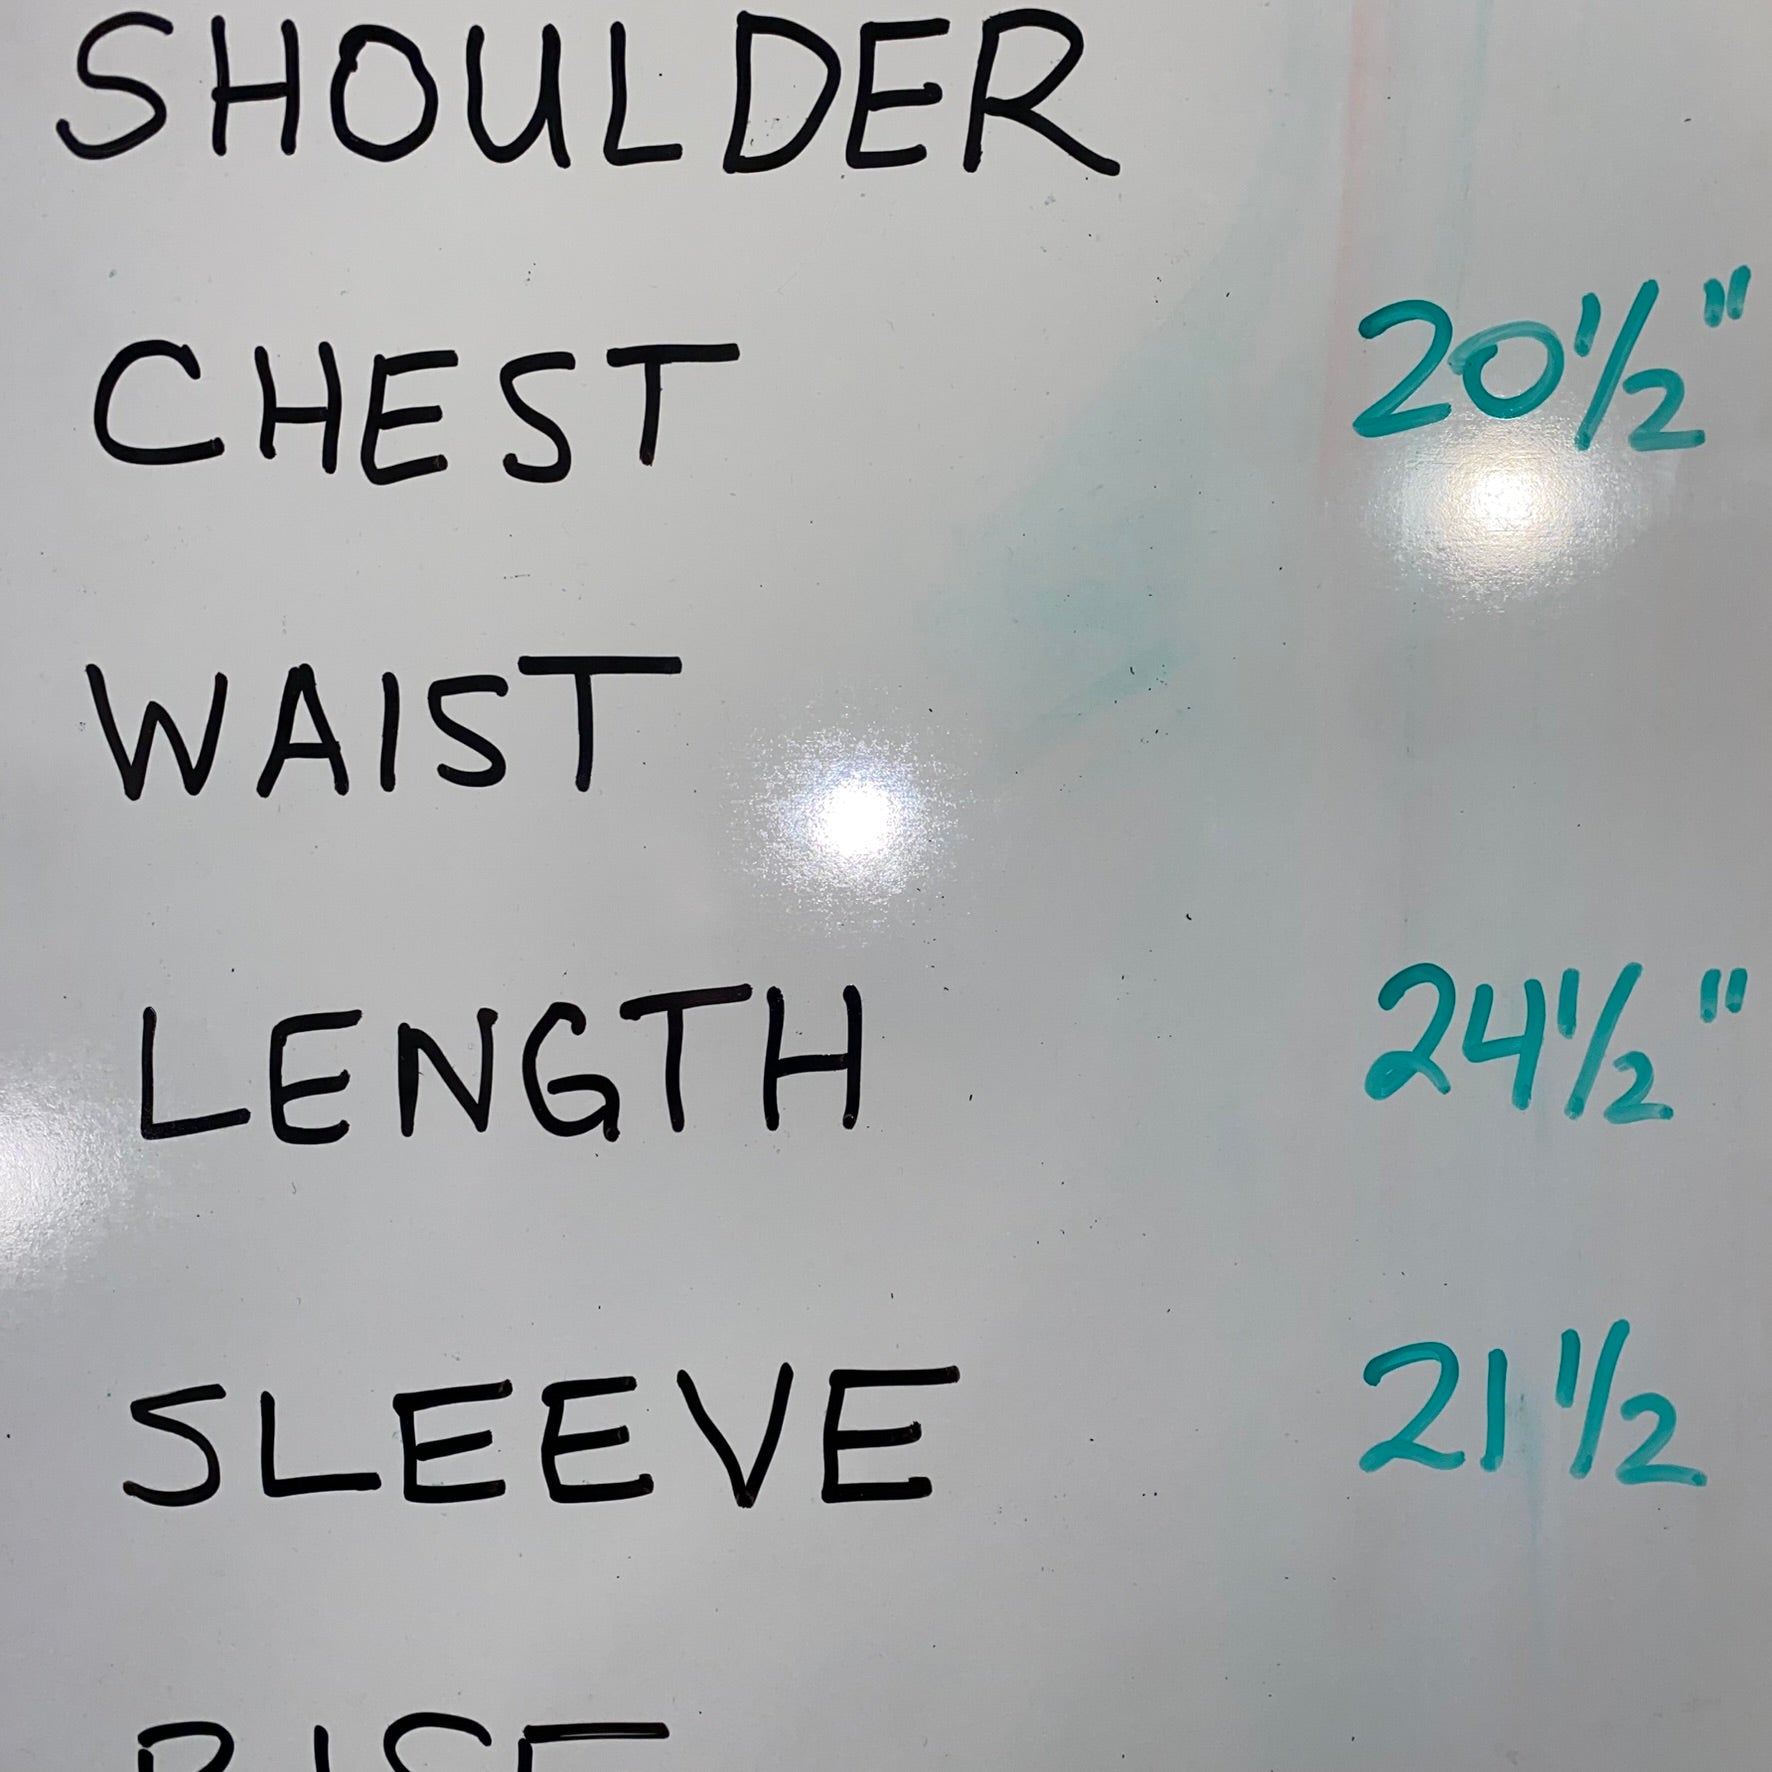 SHOULDER
CHEST 20 1/2"
WAIST
LENGTH 24 1/2"
SLEEVE 21 1/2
RISE